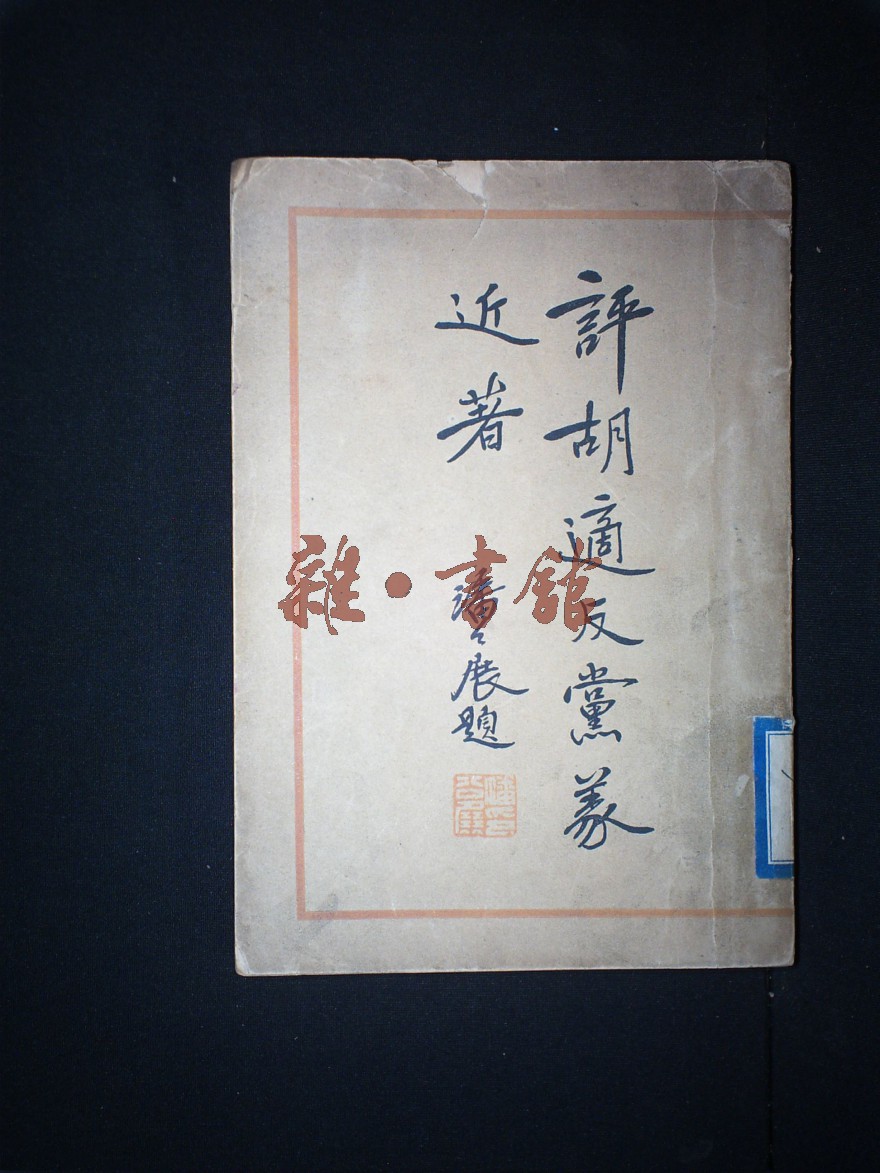 評胡適反黨義
近著
潘公展題
雜·書館